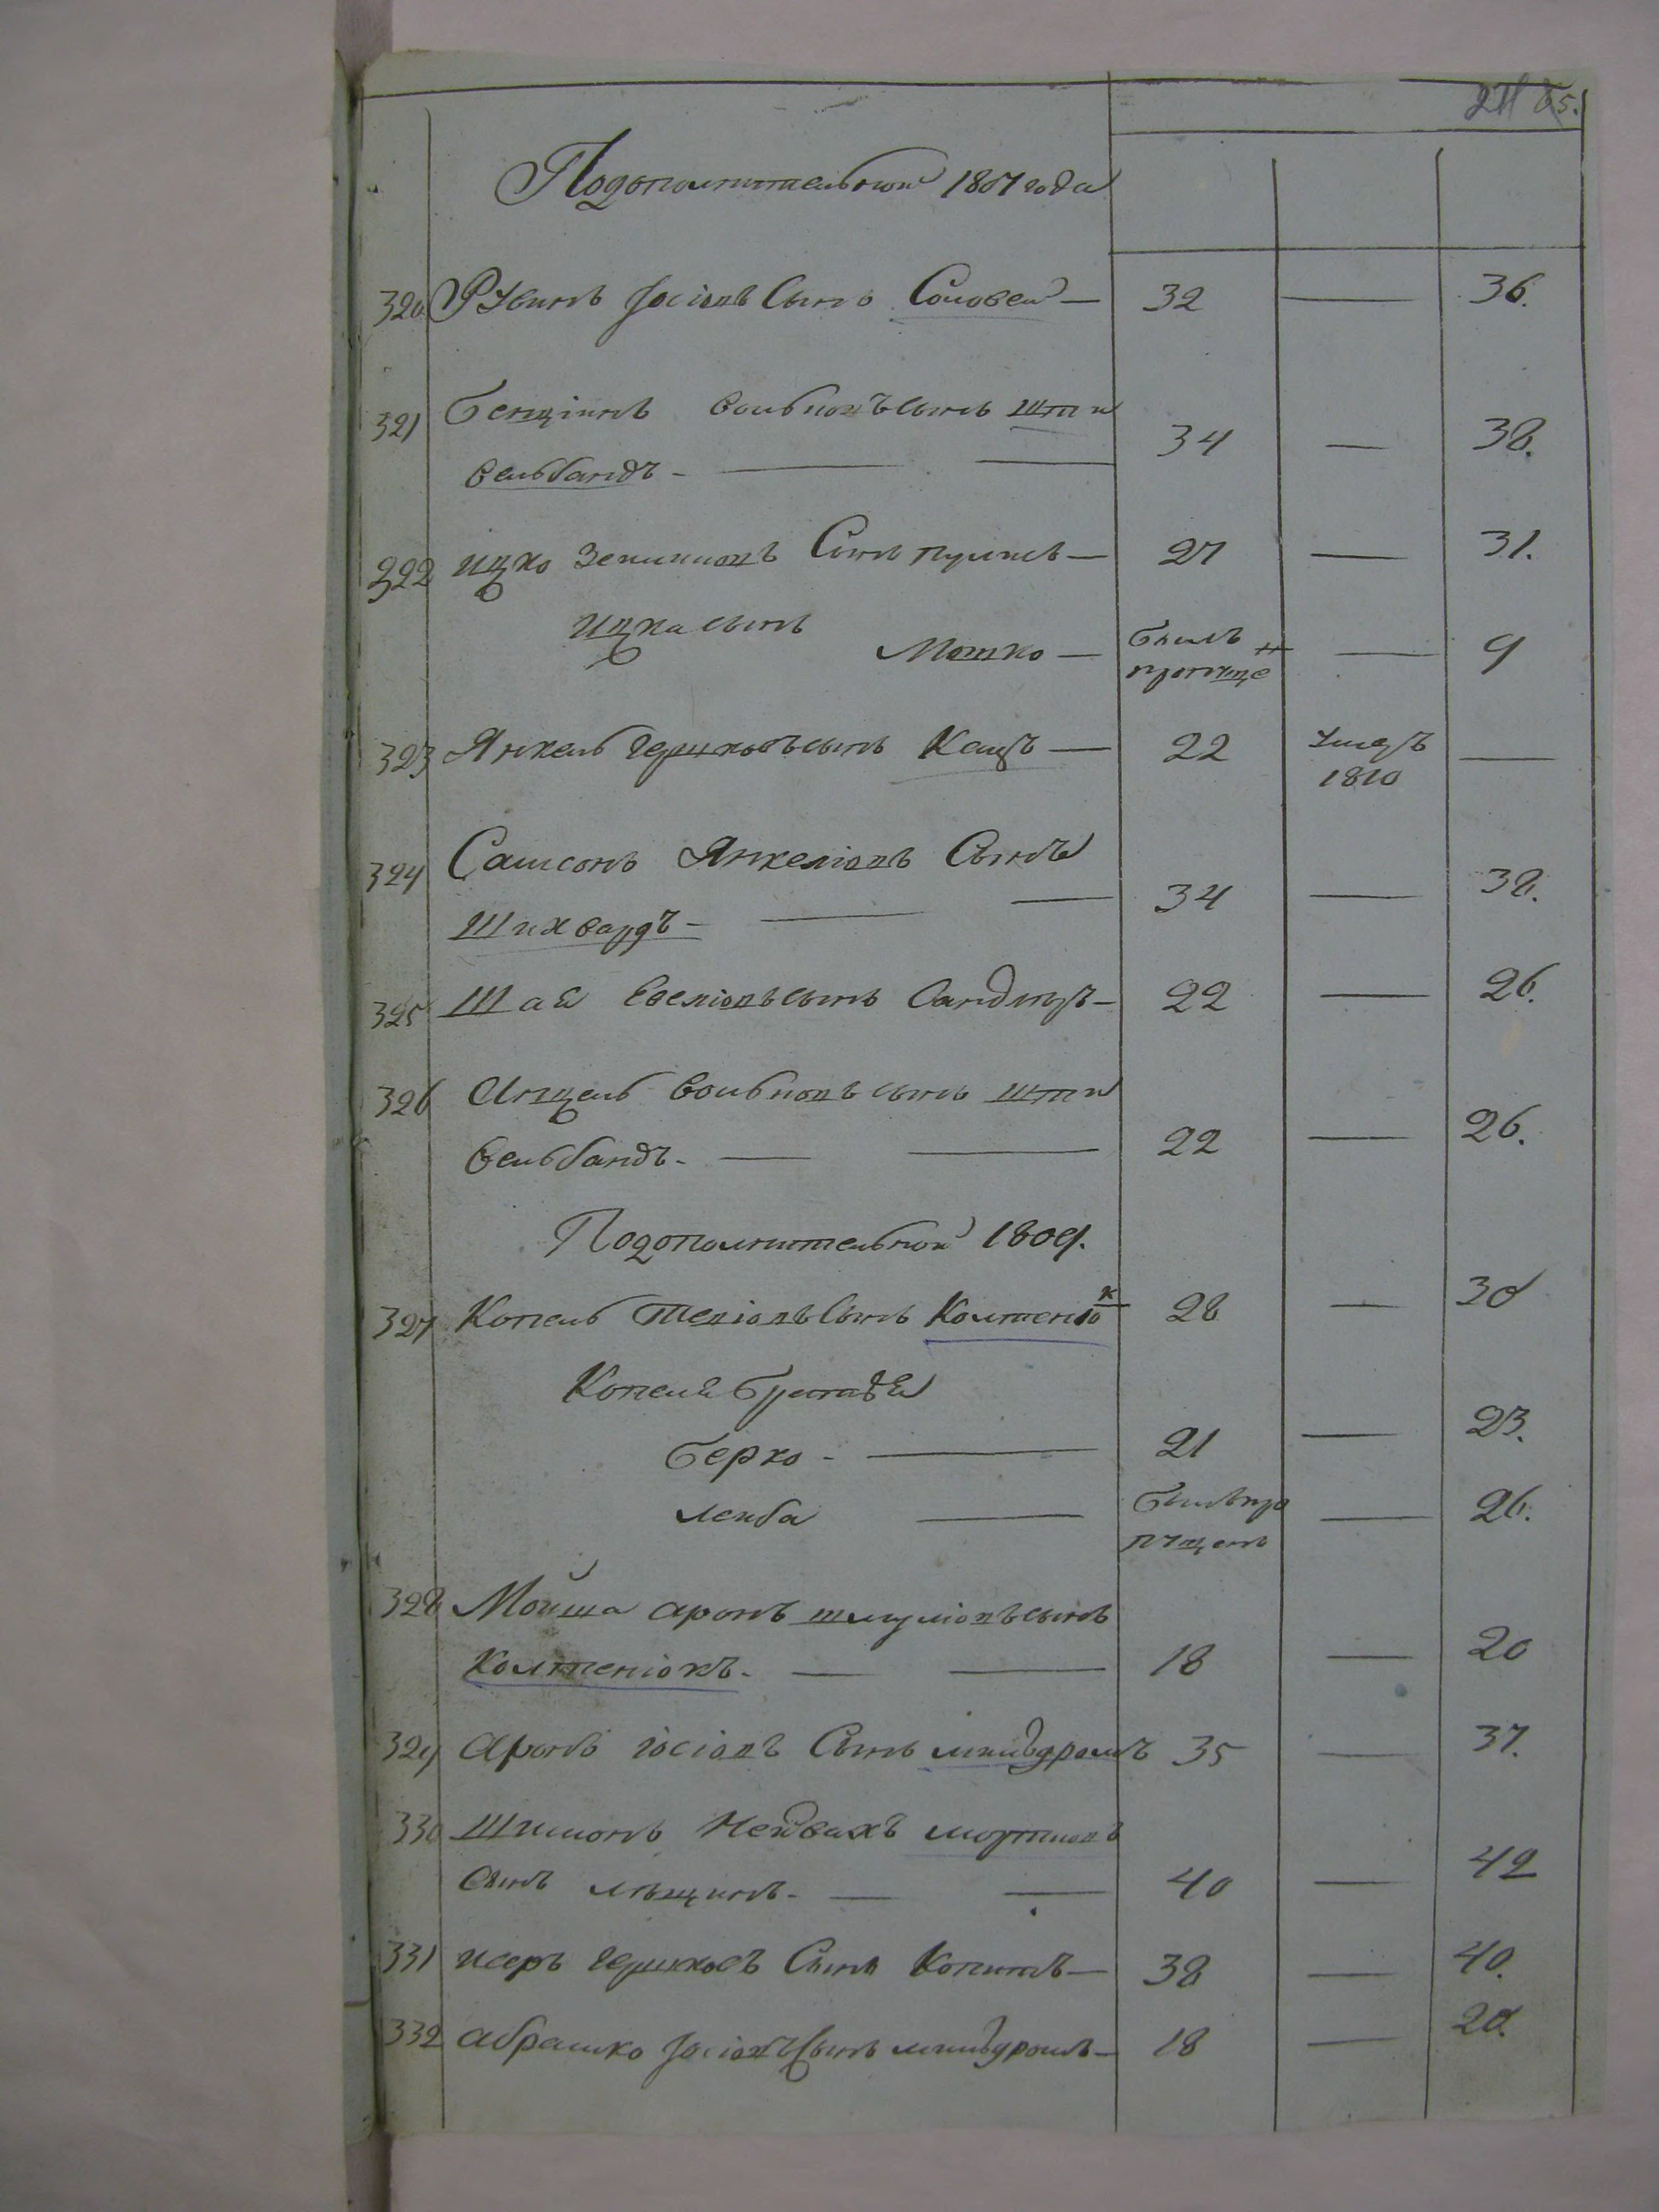 По дополнительной 1807 года
320 Рувинъ Іосіовъ Сынъ Соловей — 32 — 36.
321 Бенціинъ Вольковъ сынъ Шпи
вельбандъ — 34 — 38.
322 Ицко Зельмановъ Сынъ — 27 — 31.
Ицка сынъ
Мошко — былъ пропуще н — 9
323 Янкель Гершковъ сынъ Кацъ — 22 умеръ 1810 —
324 Самсонъ Янкеліовъ Сынъ
— 34 — 38.
325 Шая Евеліовъ сынъ — 22 — 26.
326 Анцель Вольковъ сынъ Шпи
вельбандъ — 22 — 26.
По дополнительной 1809.
327 Копель Тевіовъ Сынъ Колтеніок 28 — 30
Копеля братья
Берко — 21 — 23.
Лейба — былъ пропущенъ — 26.
328 Мойша Аронъ Шмуліовъ сынъ
Колтеніокъ — 18 — 20
329 Аронъ Іосіовъ Сынъ Мильдромъ 35 — 37.
330 Шимонъ
Сынъ — 40 — 42
331 Исеръ Гершковъ Сынъ — 38 — 40.
332 Абрамко Іосіовъ Сынъ Мильдромъ — 18 — 20.